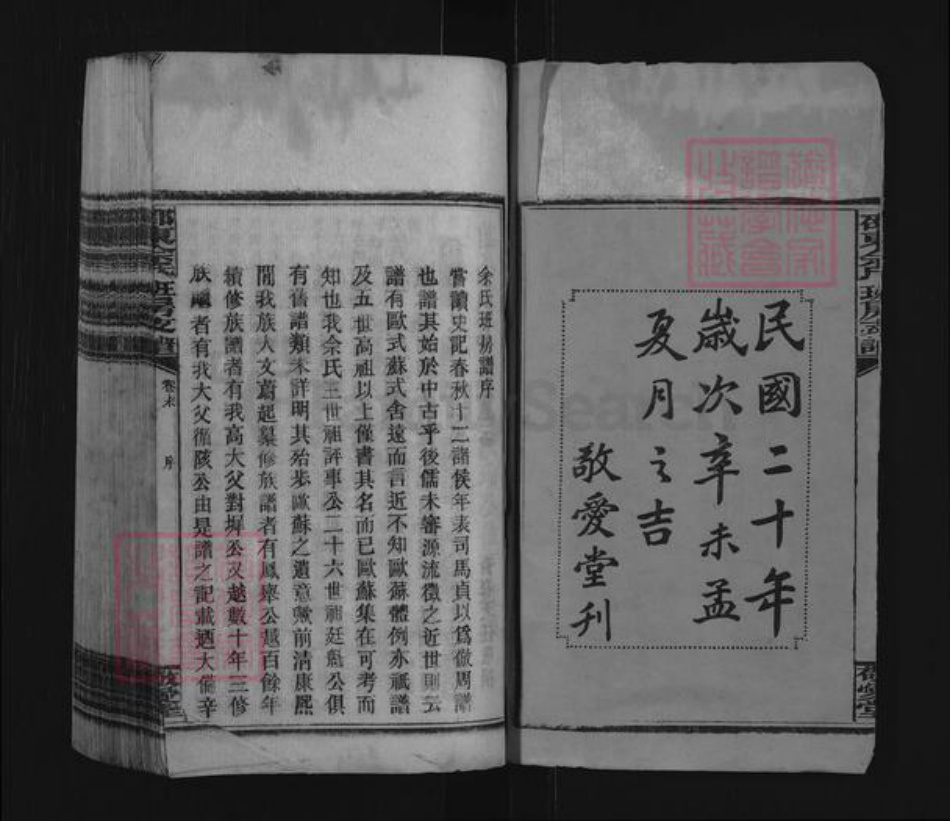 民國二十年
歲次辛未孟
夏月之吉
敬愛堂刊
余氏班房譜序
嘗讀史記春秋十二諸侯年表司馬貞以爲倣周譜
也譜其始於中古乎後儒未審源流徵之近世則云
譜有歐式蘇式舍遠而言近不知歐蘇體例亦祇譜
及五世高祖以上僅書其名而已歐蘇集在可考而
知也我余氏三世祖評事公二十六世祖廷魁公俱
有舊譜類未詳明其殆步歐蘇之遺意歟前清康熙
間我族人文蔚起纂修族譜者有鳳公越百餘年
續修族譜者有我高大父對墀公又越數十年三修
族譜者有我大父循陔公由是譜之記載迺大備辛
卷末
序
敬愛堂